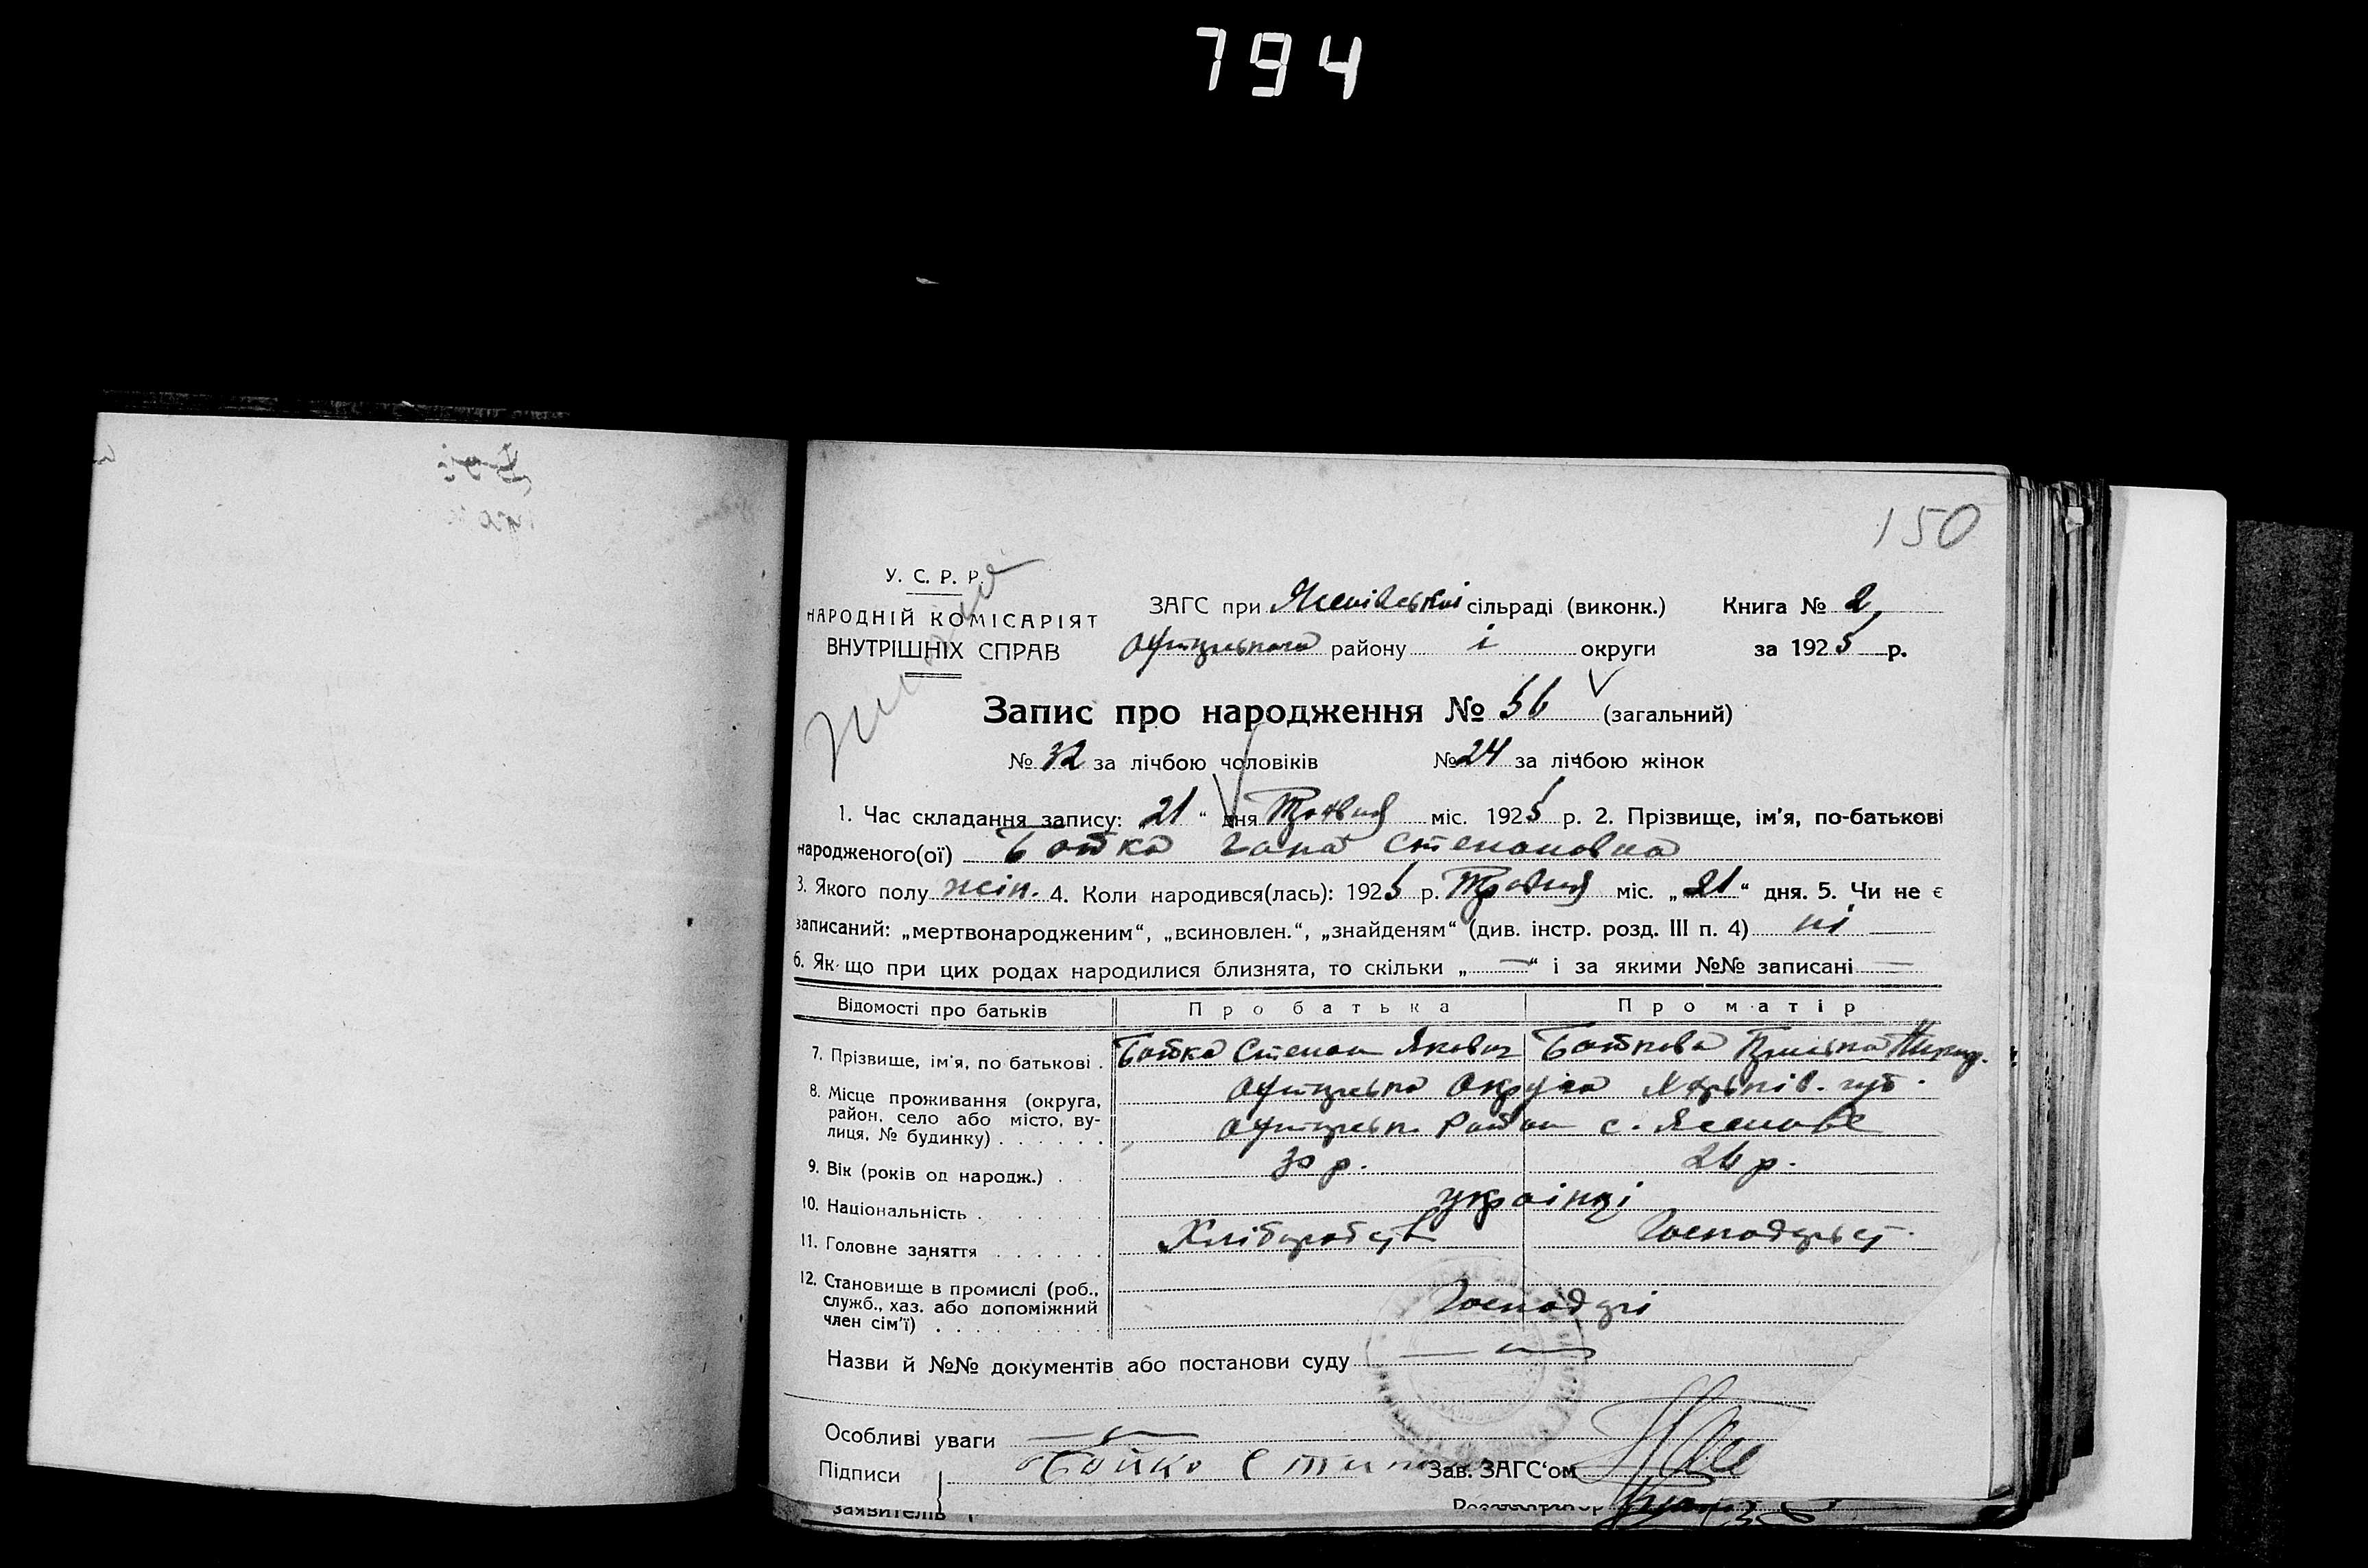 794
150
У. С. Р. Р.
НАРОДНІЙ КОМІСАРІЯТ
ВНУТРІШНІХ СПРАВ
ЗАГС при сільраді (виконк.) Книга № 2
району і округи за 1925 р.
Запис про народження № 56 (загальний)
№ 32 за лічбою чоловіків № 24 за лічбою жінок
1. Час складання запису: „21“ дня Травня міс. 1925 р. 2. Прізвище, ім'я, по-батькові
народженого(ої) Бойко Гана Степановна
3. Якого полу жін. 4. Коли народився(лась): 1925 р. Травня міс. „21“ дня. 5. Чи не є
записаний: „мертвонародженим“, „всиновлен.“, „знайденям“ (див. інстр. розд. III п. 4) ні
6. Як-що при цих родах народилися близнята, то скільки „—“ і за якими №№ записані —
Відомості про батьків Про батька Про матір
7. Прізвище, ім'я, по батькові . Бойко Степан Якович Бойкова
8. Місце проживання (округа,
район, село або місто, ву-
лиця, № будинку) . . . . . .
Округа Харьків. губ.
Район с. Ясенове
9. Вік (років од народж.) . 30 р. 26 р.
10. Національність . українці
11. Головне заняття . . . . . . Хліборобст Господарст.
12. Становище в промислі (роб.,
служб., хаз. або допоміжний
член сім'ї) . . . . . . . . .
Господарі
Назви й №№ документів або постанови суду —
Особливі уваги —
Підписи Бойко Зав. ЗАГС‘ом
заявителів Реєстратор